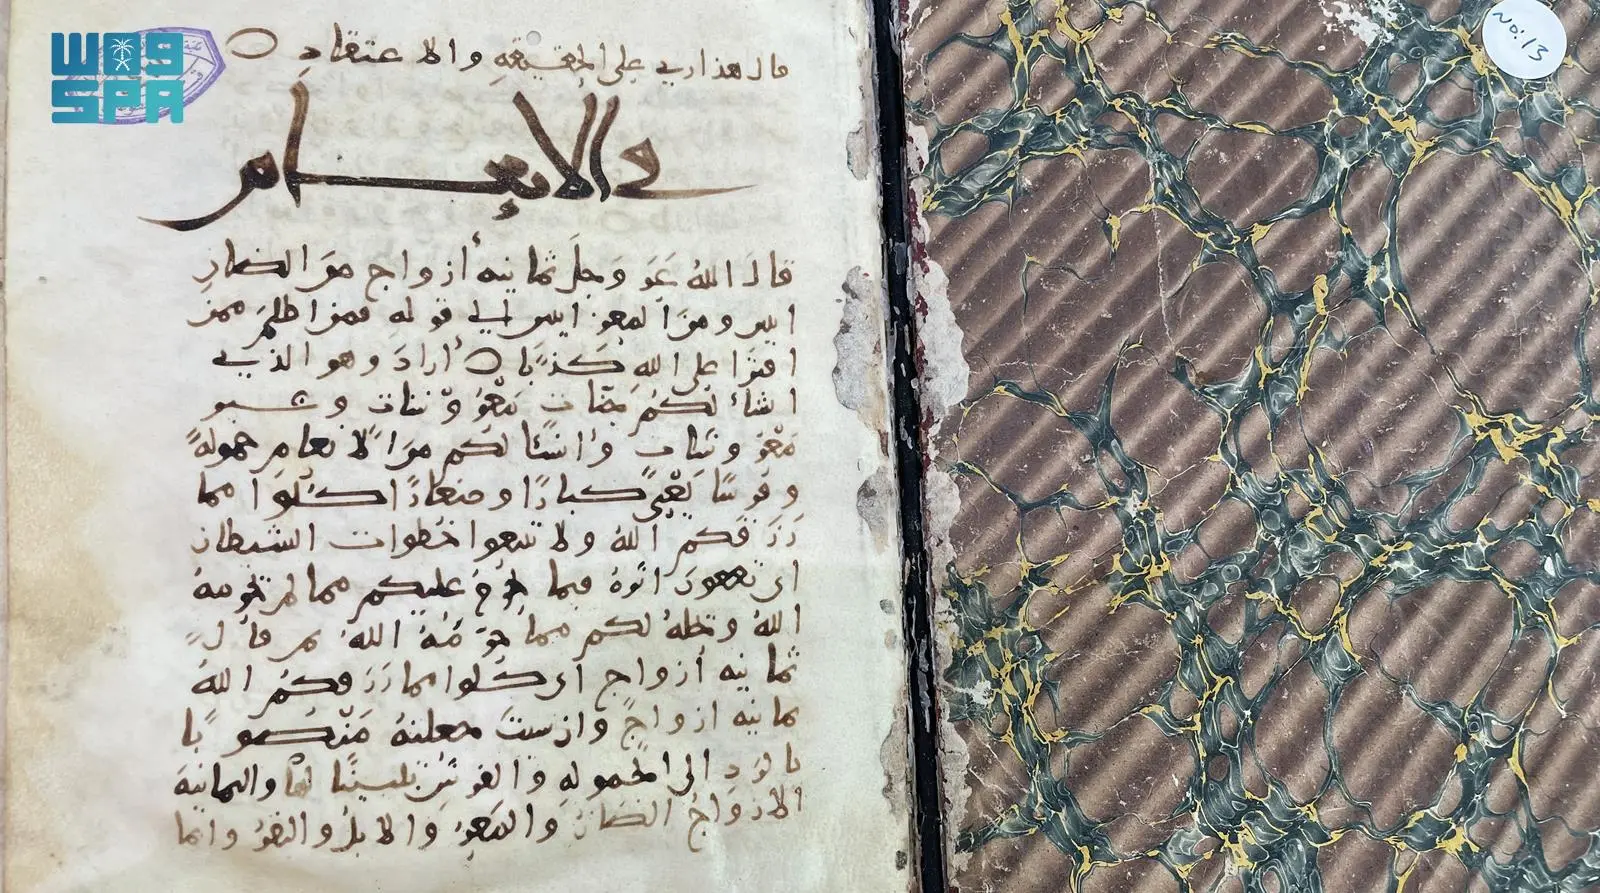 واس
SPA
NO:13
قال هذا ربي على الحقيقة والاعتقاد
في الانعام
قال الله عز وجل ثمانيه أزواج من الضان
اثنين ومن المعز اثنين الى قوله فمن اظلم ممن
افترا على الله كذبًا أراد وهو الذي
انشأ لكم جنات معروشات وغير
معروشات وأنشأ لكم من الأنعام حمولةً
وفرشًا يعني كبارًا وصغارًا كلوا مما
رزقكم الله ولا تتبعوا خطوات الشيطان
اي فيما عليكم مما لم يحرمه
الله وتحله لكم مما حرمه الله ثم قال
ثمانيه أزواج اي كلوا مما رزقكم الله
ثمانيه ازواج وان شيت جعلته منصوبًا
بالرد الى الحموله والفرش تبيينًا لها والثمانية
الازواج الضان والمعز والابل والبقر وانما